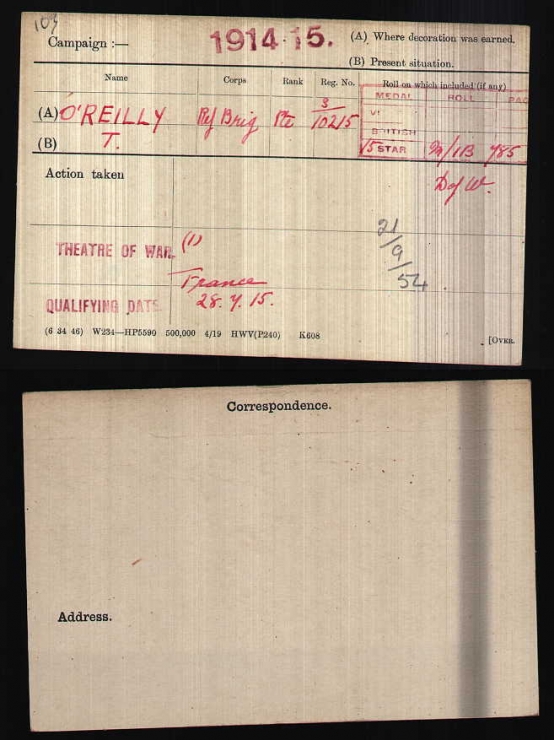 109
Campaign :— 1914-15. (A) Where decoration was earned.
(B) Present situation.
Name Corps Rank Reg. No. Roll on which included (if any)
MEDAL ROLL PAG
(A) O'REILLY Rif Brig Pte S/10215
VI
BRITISH
(B) T.
15 STAR 785
Action taken
D of W.
21/9/54
THEATRE OF WAR. (1)
France
QUALIFYING DATE. 28.7.15.
(6 34 46) W234—HP5590 500,000 4/19 HWV(P240) K608
[OVER.
Correspondence.
Address.